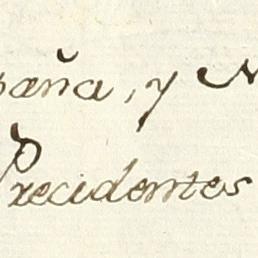 paña, y N
Precidentes